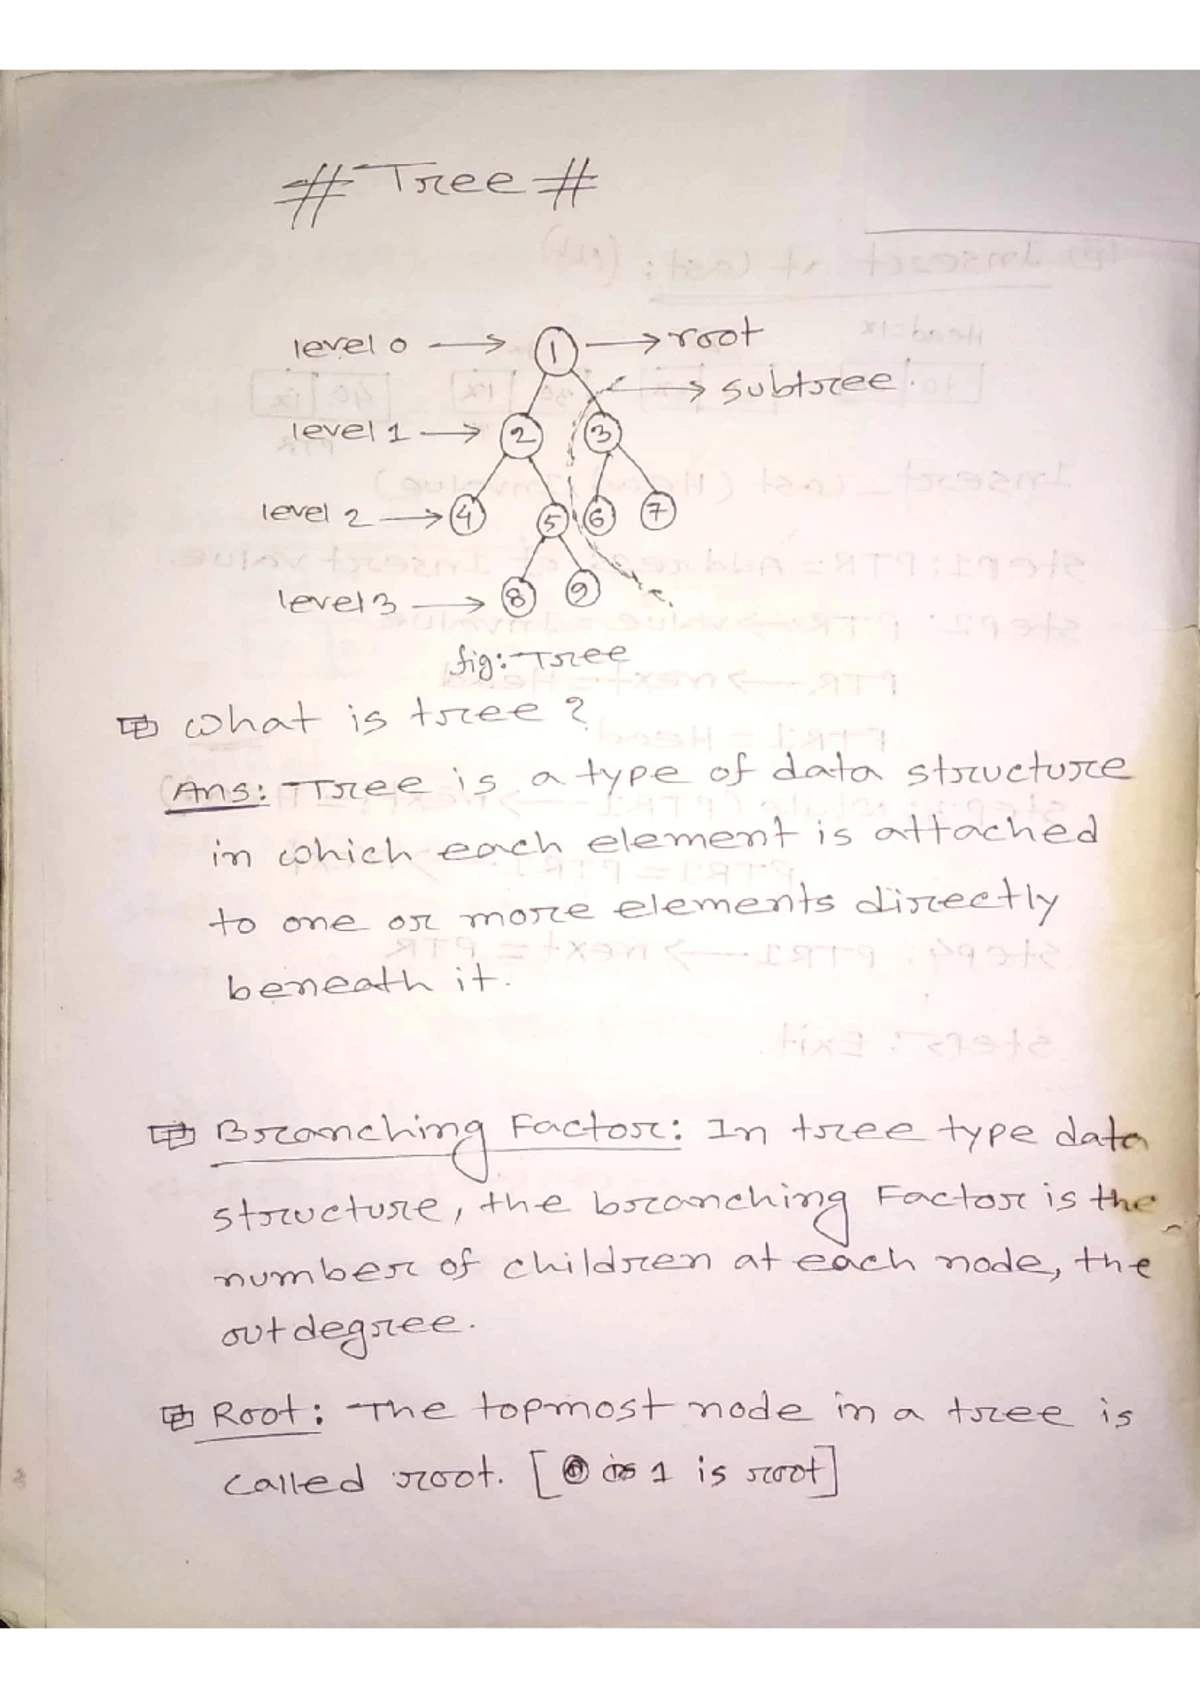 # Tree #
level 0 → 1 → root
→ subtree.
level 1 → 2 3
level 2 → 4 5 6 7
level 3 → 8 9
fig:- Tree
What is tree?
Ans: Tree is a type of data structure
in which each element is attached
to one or more elements directly
beneath it.
Branching Factor: In tree type data
structure, the branching Factor is the
number of children at each node, the
outdegree.
Root: The topmost node in a tree is
called root. [1 is root]